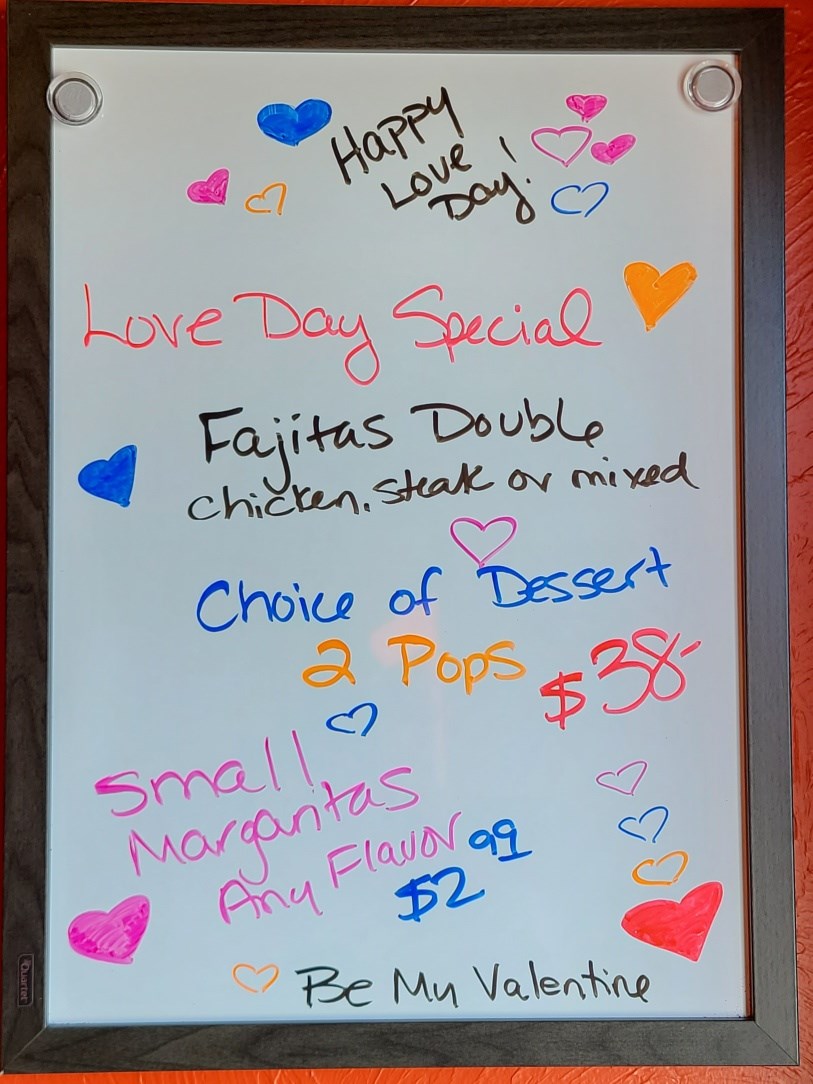 Happy
Love
Day!
Love Day Special
Fajitas Double
chicken, steak or mixed
Choice of Dessert
2 Pops $38-
Small
Margaritas
Any Flavor
$2 99
Be My Valentine
Quartet